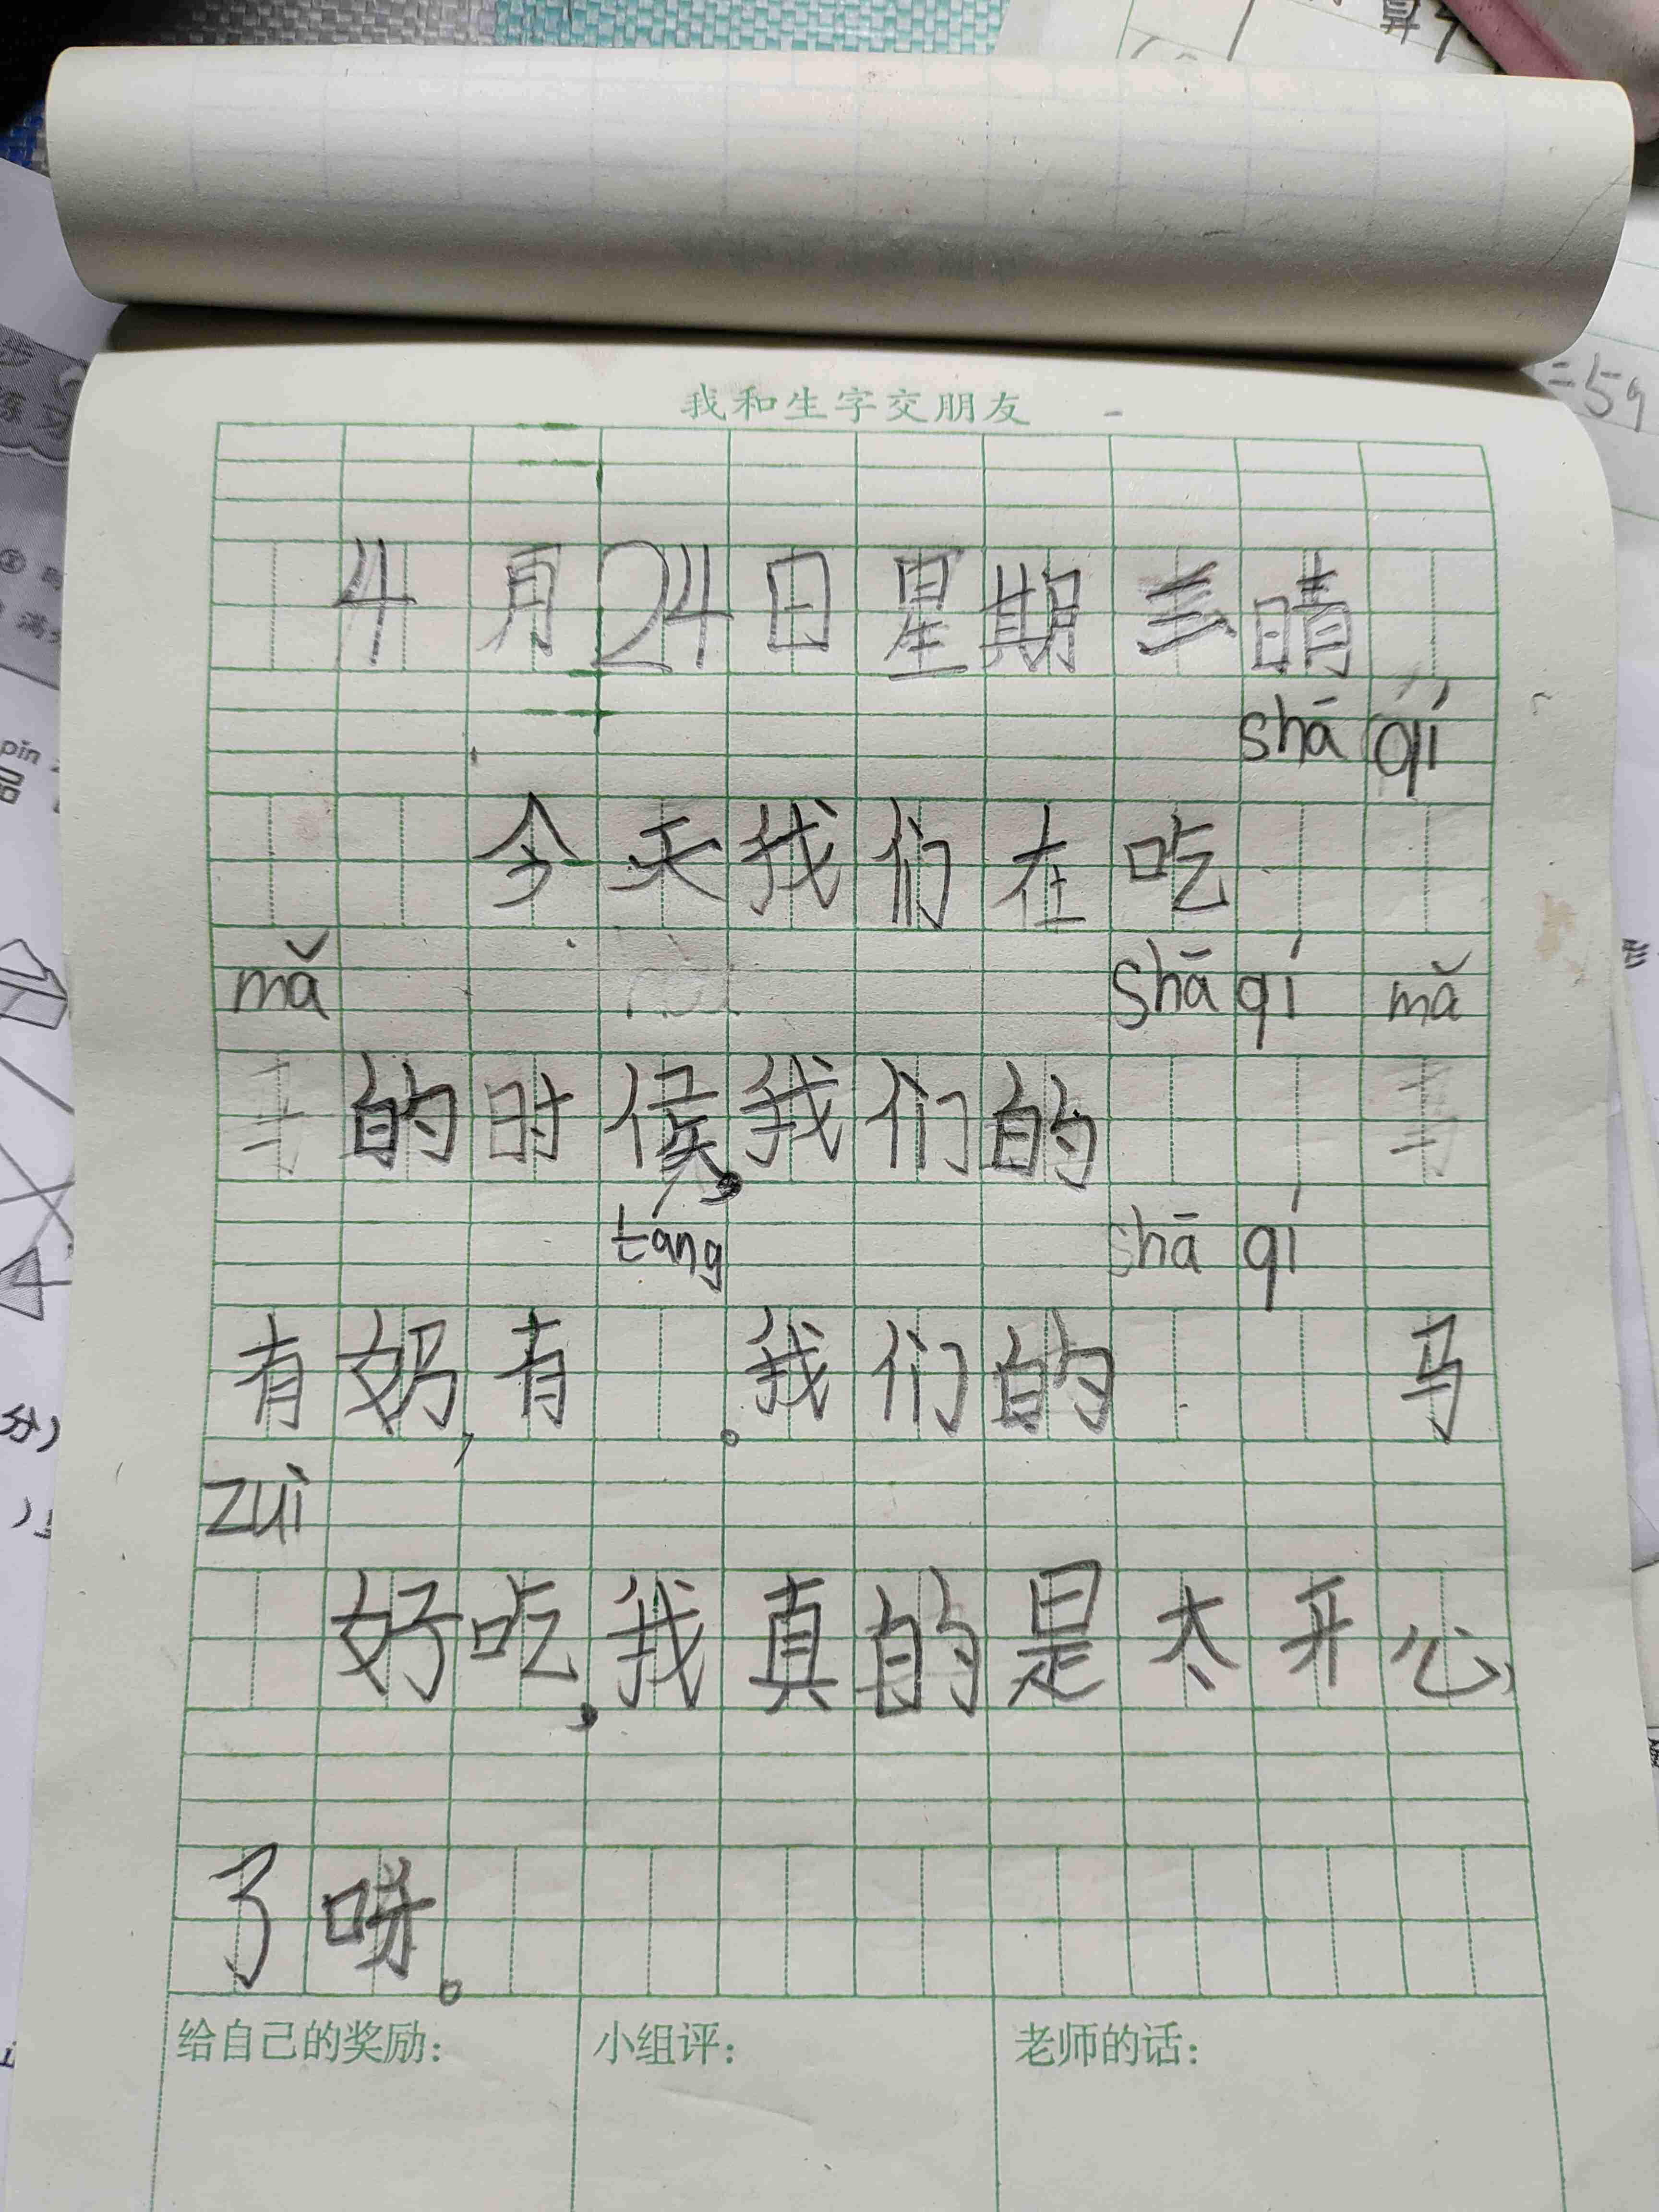 我和生字交朋友
4月24日星期三晴
shā qí
今天我们在吃
mǎ shā qí mǎ
的时候,我们的
táng shā qí
有奶,有 。我们的 马
zuì
好吃,我真的是太开心
了呀。
给自己的奖励: 小组评: 老师的话:
=59
pǐn
品
分)